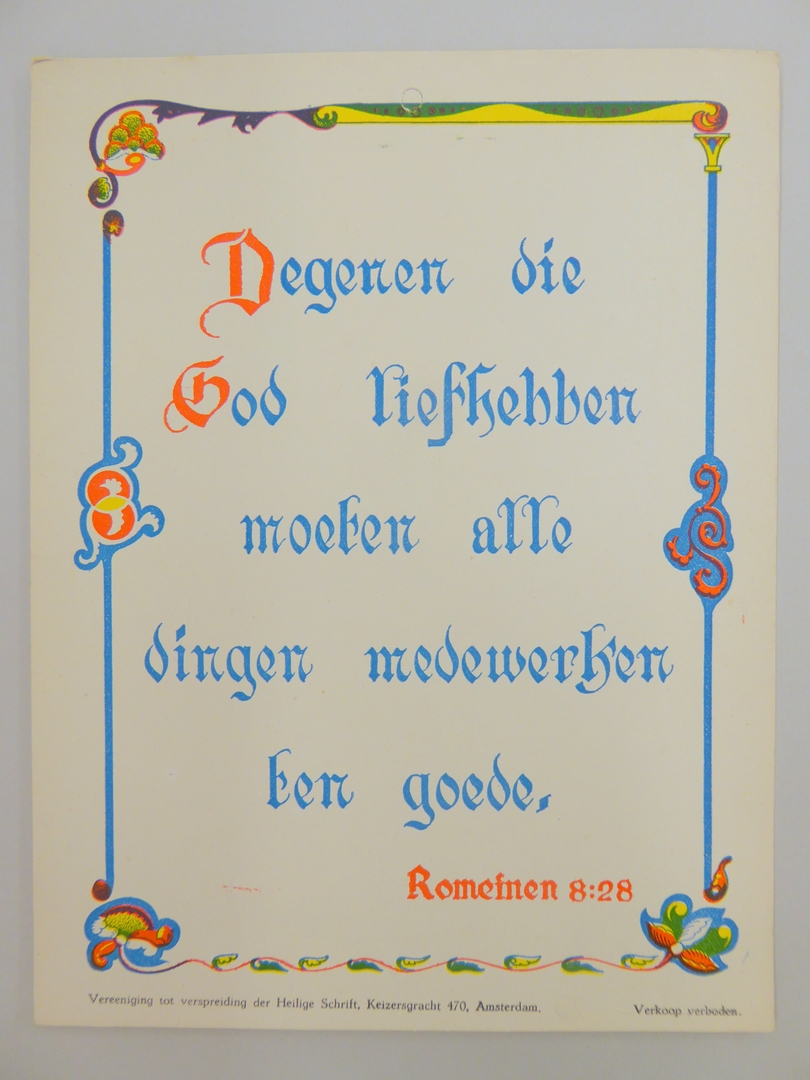 Degenen die
God liefhebben
moeten alle
dingen medewerken
ten goede.
Romeinen 8:28
Vereeniging tot verspreiding der Heilige Schrift, Keizersgracht 470, Amsterdam.
Verkoop verboden.